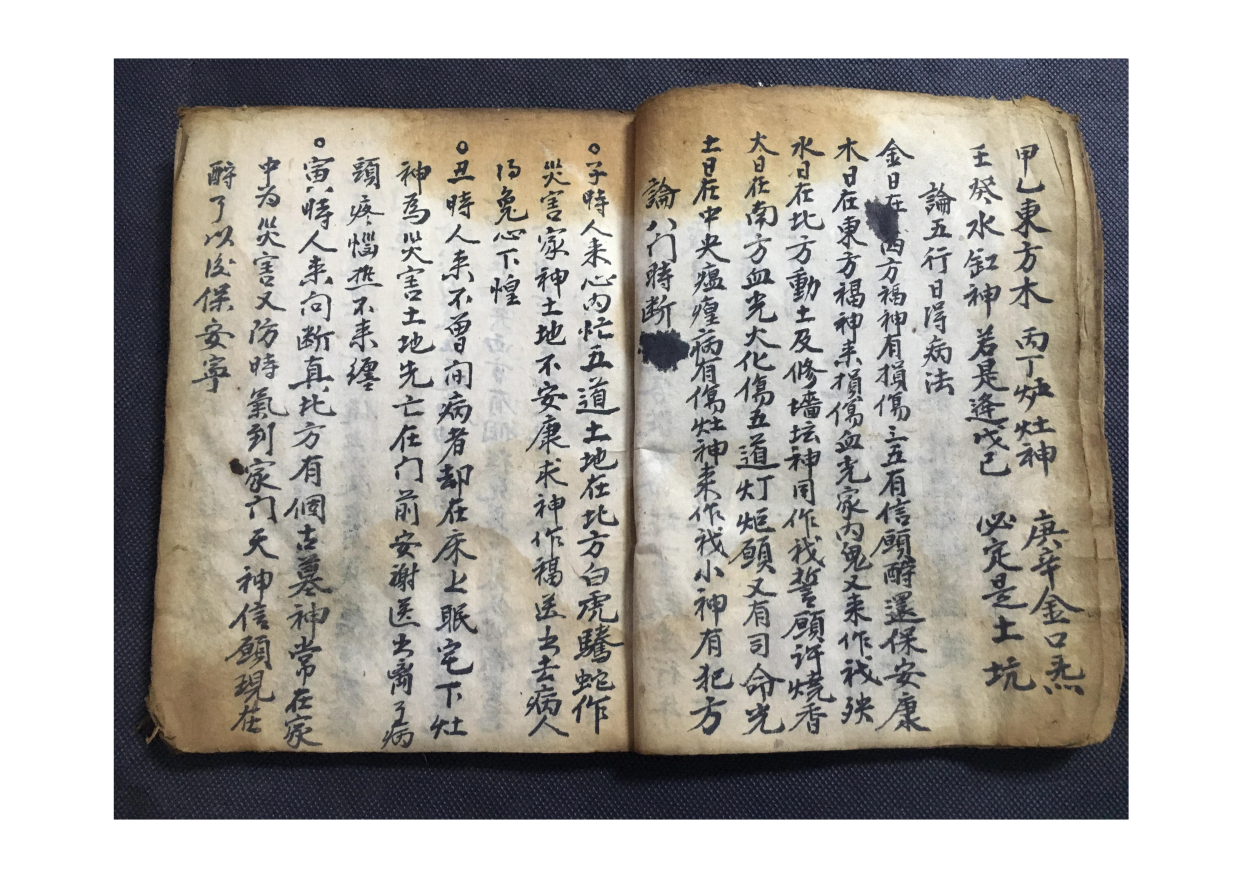 甲乙東方木 丙丁炉灶神 庚辛金口炁
壬癸水缸神 若是逢戊己 必定是土坑
論五行日得病法
金日在西方福神有損傷三五有信願酧還保安康
木日在東方禍神来損傷血光家内鬼又来作我殃
水日在北方動土及修墻坛神同作我誓願许燒香
火日在南方血光火化傷五道灯炬願又有司命光
土日在中央瘟瘟病有傷灶神来作我小神有犯方
論八门時断
〇子時人来心内忙五道土地在北方白虎騰蛇作
災害家神土地不安康求神作福送出去病人
得免心下惶
〇丑時人来不曾闲病者却在床上眠宅下灶
神為災害土地先亡在门前安謝送出离了病
頭疼惱热不来纏
〇寅時人来问断真北方有個古墓神常在家
中为災害又防時氣到家门天神信願現在
酧了以后保安寧